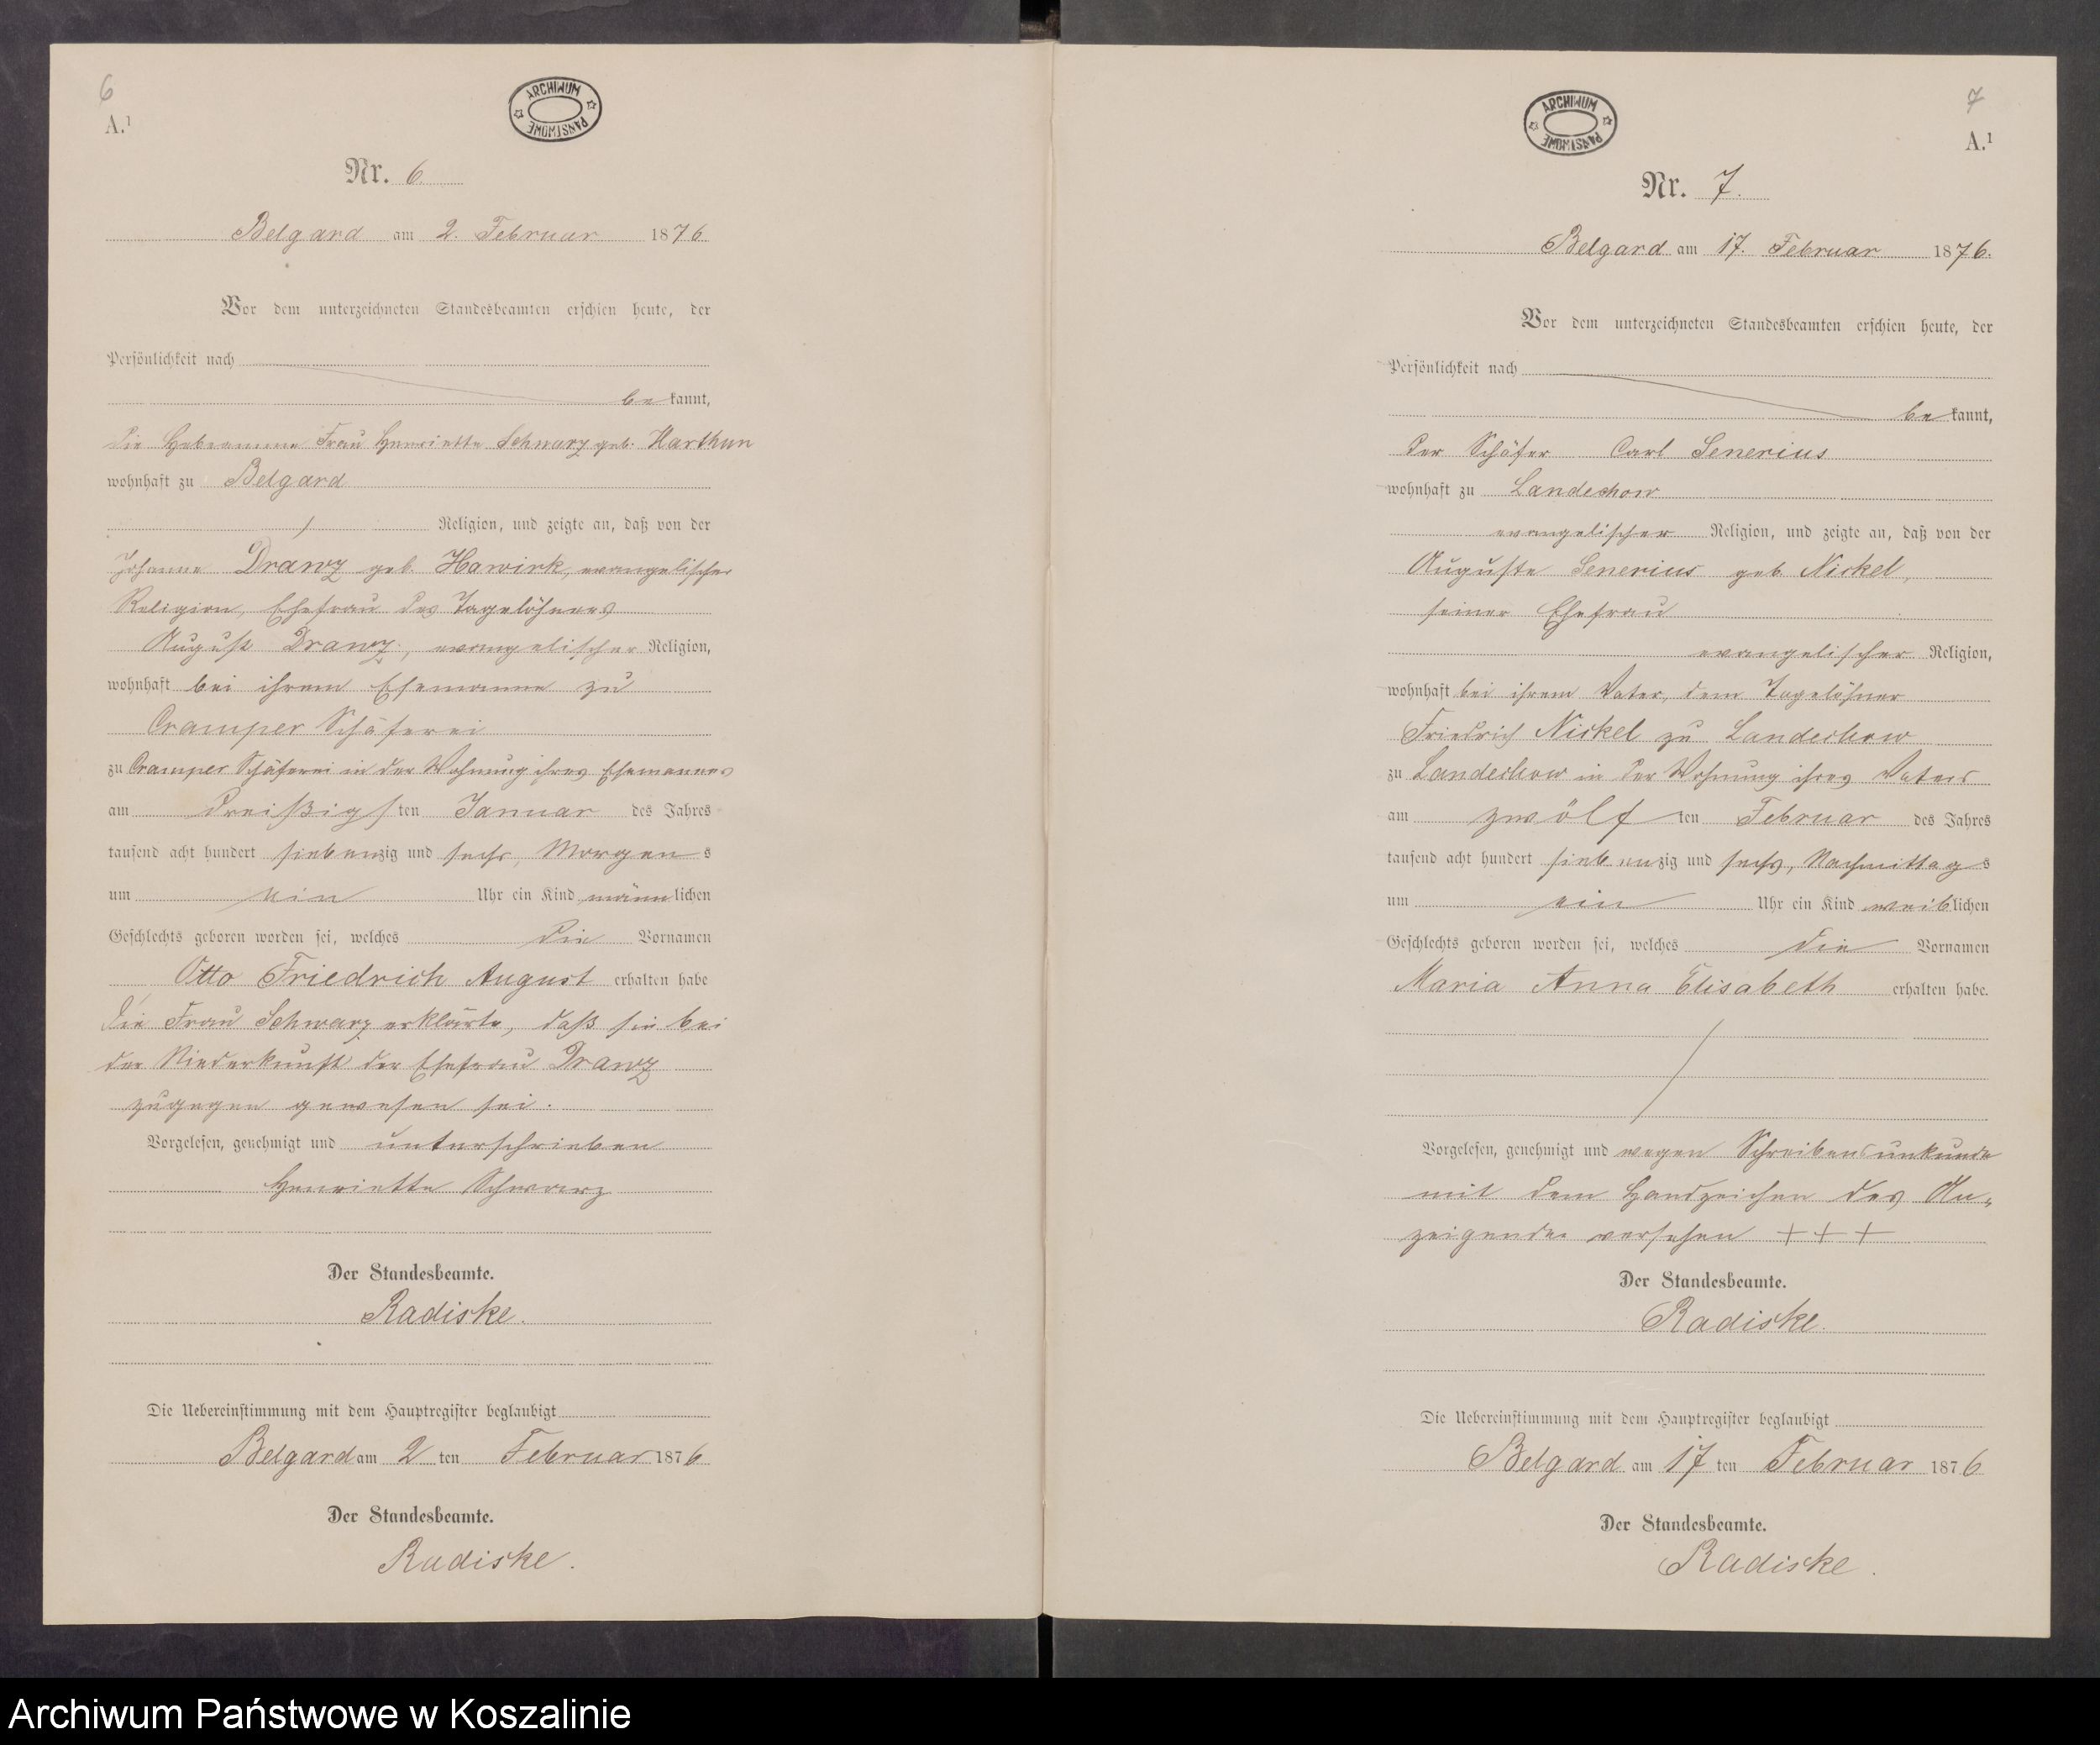 6
A.¹
ARCHIWUM PAŃSTWOWE
Nr. 6.
Belgard am 2. Februar 1876
Vor dem unterzeichneten Standesbeamten erschien heute, der
Persönlichkeit nach
be kannt,
die Hebeamme Frau Henriette Schwarz geb. Harthun
wohnhaft zu Belgard
Religion, und zeigte an, daß von der
Johanne Drawz geb. Hawirk, evangelischer
Religion, Ehefrau des Tagelöhners
August Drawz, evangelischer Religion,
wohnhaft bei ihrem Ehemanne zu
Cramper Schäferei
zu Cramper Schäferei in der Wohnung ihres Ehemannes
am dreißigsten Januar des Jahres
tausend acht hundert siebenzig und sechs, Morgens
um ein Uhr ein Kind männlichen
Geschlechts geboren worden sei, welches die Vornamen
Otto Friedrich August erhalten habe
die Frau Schwarz erklärte, daß sie bei
der Niederkunft der Ehefrau Drawz
zugegen gewesen sei.
Vorgelesen, genehmigt und unterschrieben
Henriette Schwarz
Der Standesbeamte.
Radiske.
Die Uebereinstimmung mit dem Hauptregister beglaubigt
Belgard am 2 ten Februar 1876
Der Standesbeamte.
Radiske.
7
A.¹
ARCHIWUM PAŃSTWOWE
Nr. 7.
Belgard am 17. Februar 1876.
Vor dem unterzeichneten Standesbeamten erschien heute, der
Persönlichkeit nach
be kannt,
der Schäfer Carl Senerius
wohnhaft zu Landechow
evangelischer Religion, und zeigte an, daß von der
Auguste Senerius geb. Nickel,
seiner Ehefrau
evangelischer Religion,
wohnhaft bei ihrem Vater, dem Tagelöhner
Friedrich Nickel zu Landechow
zu Landechow in der Wohnung ihres Vaters
am zwölften Februar des Jahres
tausend acht hundert siebenzig und sechs, Nachmittags
um ein Uhr ein Kind weiblichen
Geschlechts geboren worden sei, welches die Vornamen
Maria Anna Elisabeth erhalten habe.
Vorgelesen, genehmigt und wegen Schreibensunkunde
mit dem Handzeichen des An-
zeigenden versehen + + +
Der Standesbeamte.
Radiske.
Die Uebereinstimmung mit dem Hauptregister beglaubigt
Belgard am 17 ten Februar 1876
Der Standesbeamte.
Radiske.
Archiwum Państwowe w Koszalinie